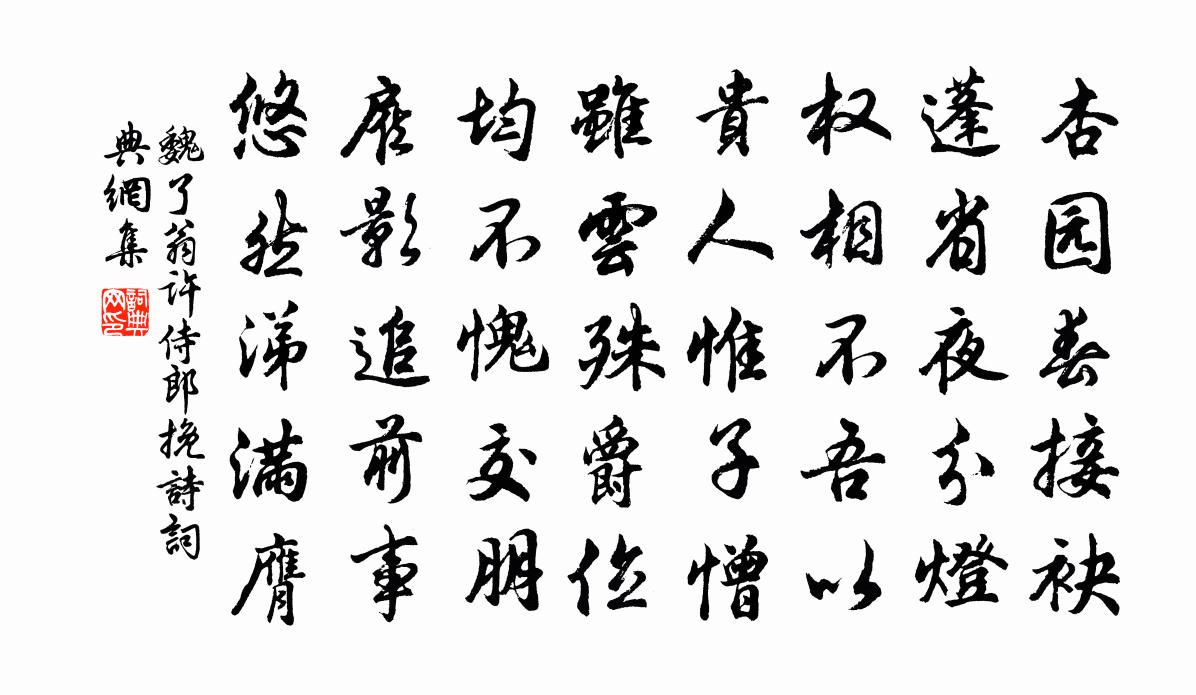 杏园春接袂
蓬省夜分燈
权相不吾以
貴人惟子憎
雖雲殊爵位
均不愧交朋
雁影追前事
悠然涕满膺
魏了翁許侍郎挽詩詞
典網集
詞典
网印